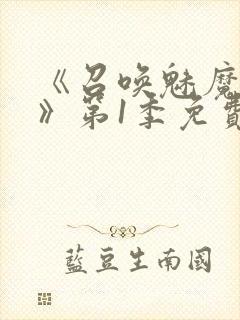 《召唤魅魔
》第1季免費
藍豆生南國